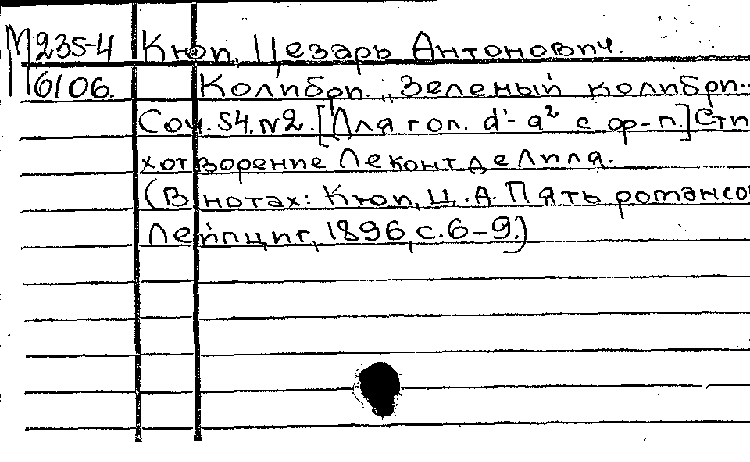 М 235-4 Кюи, Цезарь Антонович.
6106. Колибри. „Зеленый колибри..
Соч. 54, № 2. [Для гол. d¹-a² с ф-п.] Сти
хотворение Леконт де Лиля.
(В нотах: Кюи, Ц. А. Пять романсо
Лейпциг, 1896, с. 6-9.)